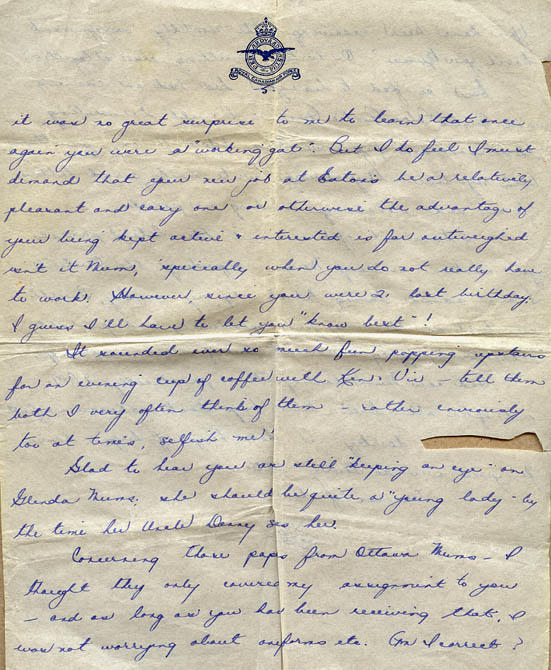 PER ARDUA AD ASTRA
ROYAL CANADIAN AIR FORCE
it was no great surprise to me to learn that once
again you were a "working gal". But I do feel I must
demand that your new job at Eaton's be a relatively
pleasant and easy one or otherwise the advantage of
your being kept active & interested is far outweighed
isn't it Mum, 'specially when you do not really have
to work. However, since you were 21 last birthday,
I guess I'll have to let you "know best"!
It sounded ever so much fun popping upstairs
for an evening cup of coffee with Ken & Viv - tell them
both I very often think of them - rather enviously
too at times, selfish me!
Glad to hear you are still "keeping an eye" on
Glenda Mums, she should be quite a "young lady" by
the time her Uncle Danny sees her.
Concerning those paps from Ottawa Mums - I
thought they only covered my assignment to you
- and as long as you has been receiving that, I
was not worrying about uniforms etc. Am I correct?